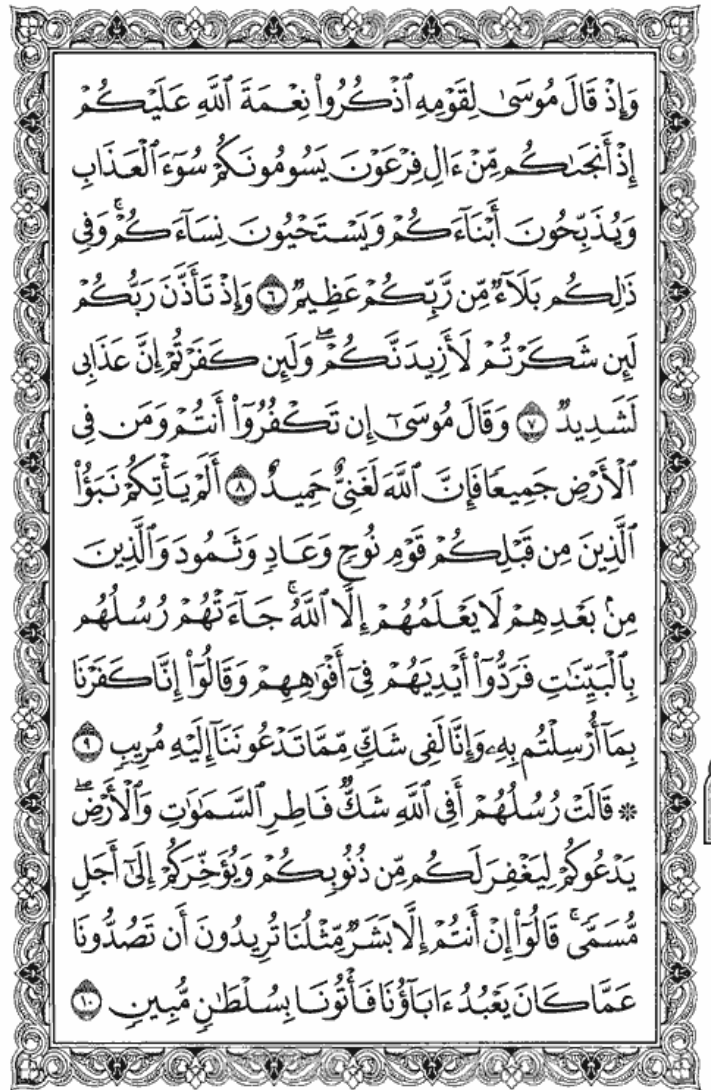 وَإِذْ قَالَ مُوسَىٰ لِقَوْمِهِ ٱذْكُرُوا۟ نِعْمَةَ ٱللَّهِ عَلَيْكُمْ
إِذْ أَنجَىٰكُم مِّنْ ءَالِ فِرْعَوْنَ يَسُومُونَكُمْ سُوٓءَ ٱلْعَذَابِ
وَيُذَبِّحُونَ أَبْنَآءَكُمْ وَيَسْتَحْيُونَ نِسَآءَكُمْ ۚ وَفِى
ذَٰلِكُم بَلَآءٌ مِّن رَّبِّكُمْ عَظِيمٌ ٦ وَإِذْ تَأَذَّنَ رَبُّكُمْ
لَئِن شَكَرْتُمْ لَأَزِيدَنَّكُمْ ۖ وَلَئِن كَفَرْتُمْ إِنَّ عَذَابِى
لَشَدِيدٌ ٧ وَقَالَ مُوسَىٰٓ إِن تَكْفُرُوٓا۟ أَنتُمْ وَمَن فِى
ٱلْأَرْضِ جَمِيعًا فَإِنَّ ٱللَّهَ لَغَنِىٌّ حَمِيدٌ ٨ أَلَمْ يَأْتِكُمْ نَبَؤُا۟
ٱلَّذِينَ مِن قَبْلِكُمْ قَوْمِ نُوحٍ وَعَادٍ وَثَمُودَ وَٱلَّذِينَ
مِنۢ بَعْدِهِمْ لَا يَعْلَمُهُمْ إِلَّا ٱللَّهُ ۚ جَآءَتْهُمْ رُسُلُهُم
بِٱلْبَيِّنَٰتِ فَرَدُّوٓا۟ أَيْدِيَهُمْ فِىٓ أَفْوَٰهِهِمْ وَقَالُوٓا۟ إِنَّا كَفَرْنَا
بِمَآ أُرْسِلْتُم بِهِۦ وَإِنَّا لَفِى شَكٍّ مِّمَّا تَدْعُونَنَآ إِلَيْهِ مُرِيبٍ ٩
۞ قَالَتْ رُسُلُهُمْ أَفِى ٱللَّهِ شَكٌّ فَاطِرِ ٱلسَّمَٰوَٰتِ وَٱلْأَرْضِ ۖ
يَدْعُوكُمْ لِيَغْفِرَ لَكُم مِّن ذُنُوبِكُمْ وَيُؤَخِّرَكُمْ إِلَىٰٓ أَجَلٍ
مُّسَمًّى ۚ قَالُوٓا۟ إِنْ أَنتُمْ إِلَّا بَشَرٌ مِّثْلُنَا تُرِيدُونَ أَن تَصُدُّونَا
عَمَّا كَانَ يَعْبُدُ ءَابَآؤُنَا فَأْتُونَا بِسُلْطَٰنٍ مُّبِينٍ ١٠